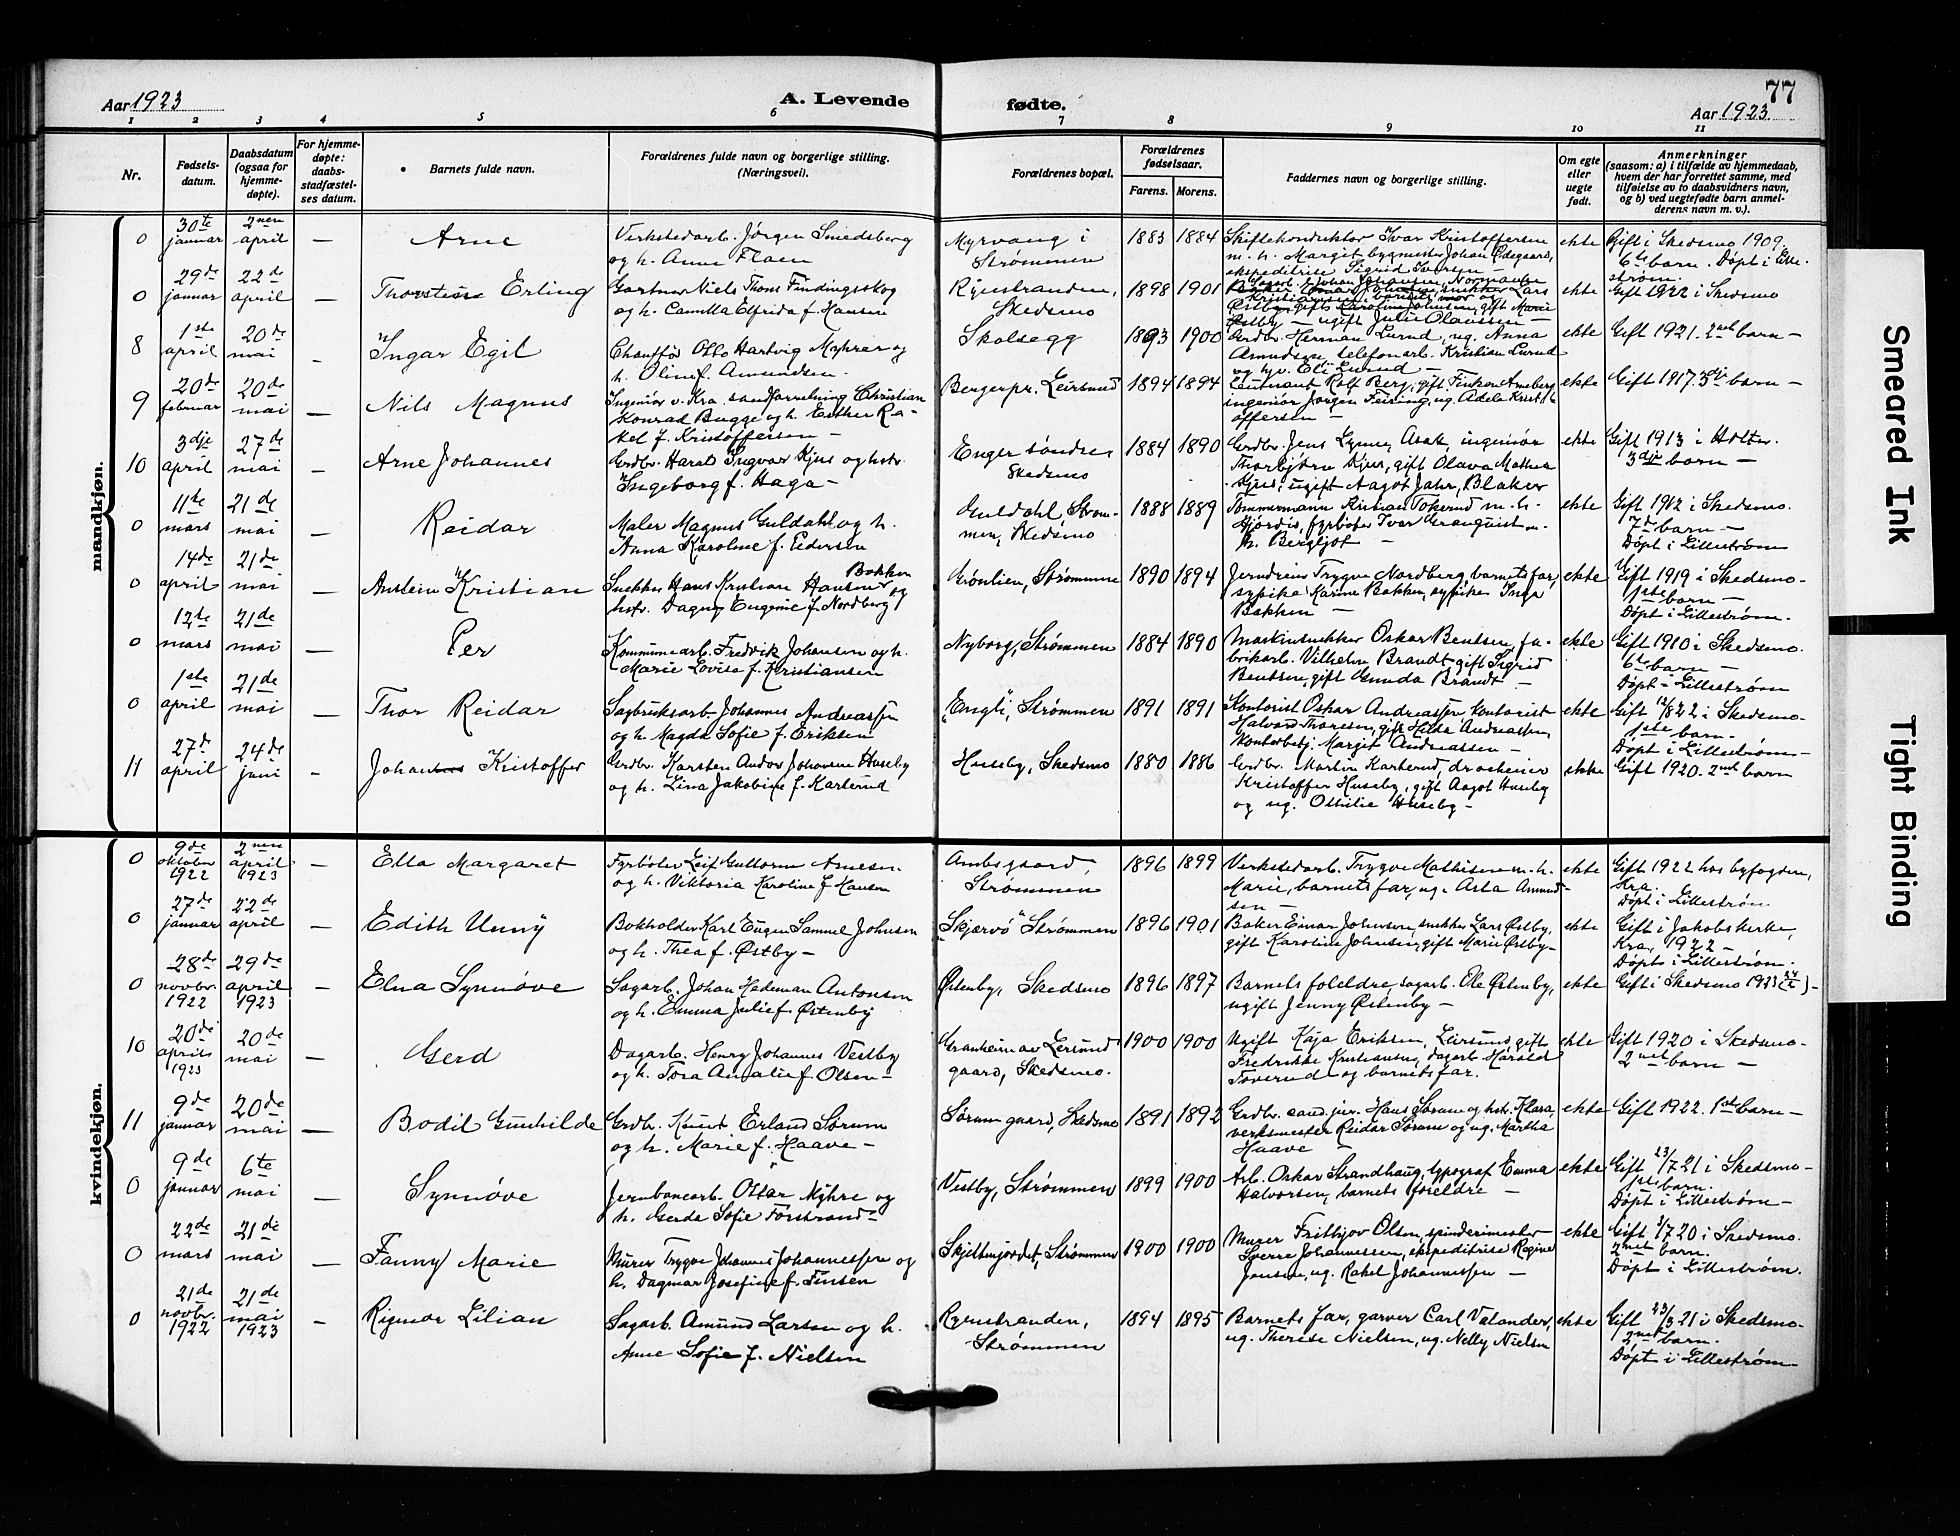 77
Aar 1923
A. Levende fødte.
Aar 1923.
1 2 3 4 5 6 7 8 9 10 11
Nr.
Fødsels-
datum.
Daabsdatum
(ogsaa for
hjemme-
døpte).
For hjemme-
døpte:
daabs-
stadfæstel-
ses datum.
Barnets fulde navn.
Forældrenes fulde navn og borgerlige stilling.
(Næringsvei).
Forældrenes bopæl.
Forældrenes
fødselsaar.
Farens. Morens.
Faddernes navn og borgerlige stilling.
Om egte
eller
uegte
født.
Anmerkninger
(saasom: a) i tilfælde av hjemmedaab,
hvem der har forrettet samme, med
tilføielse av to daabsvidners navn,
og b) ved uegtefødte barn anmel-
derens navn m. v.).
mandkjøn.
0 30te januar 2nen april — Arne
Verkstedarb. Jørgen Smedsberg
og h. Anna Flaen
Myrvang i
Strømmen
1883 1884
Skiftekonduktør Ivar Kristoffersen
m. h. Margit bygmester Johan Ødegaard,
ekspeditrise Sigrid Iversen —
ekte
Gift i Skedsmo 1909.
6te barn. Døpt i Lille-
strøm.
0 29de januar 22de april — Thorstein Erling
Gartner Niels Thoms Findingsskog
og h. Camilla Elfrida f. Hansen
Ryenstranden,
Skedsmo
1898 1901
ugift Julie Olaussen —
ekte
Gift 1922 i Skedsmo
8 1ste april 20de mai — Ingar Egil
Chauffør Otto Hartvig Myhrer og
h. Oline f. Amundsen.
Skolsegg
1893 1900
Grdbr. Herman Lurud, ug. Anna
Amundsen, telefonarb. Kristian Lurud
og hv. Eli Lurud —
ekte
Gift 1921. 2net barn —
9 20de februar 20de mai — Nils Magnus
Ingeniør v. Kra. sandforretning Christian
Konrad Bugge og h. Esther Ra-
kel f. Kristoffersen —
Bergerpr. Leirsund
1894 1894
Leutnant Rolf Berg, gift Finken Arneberg
ingeniør Jørgen Feiring, ug. Adele Krist-
offersen —
ekte
Gift 1917. 3dje barn —
10 3dje april 27de mai — Arne Johannes
Grdbr. Harald Ingvar Kjus og hstr.
Ingeborg f. Haga —
Enger søndre
Skedsmo
1884 1890
Grdbr. Jens Lynne, Asak, ingeniør
Thorbjørn Kjus, gift Olava Mathea
Kjus, ugift Aagot Jahr, Blaker
ekte
Gift 1913 i Holter.
3dje barn —
0 11te mars 21de mai — Reidar
Maler Magnus Guldahl og h.
Anna Karoline f. Pedersen
Guldahl Strøm-
men, Skedsmo
1888 1889
Tømmermann Kristian Tokerud m. h.
Hjørdis, fyrbøter Ivar Granquist m.
h. Bergljot —
ekte
Gift 1912 i Skedsmo.
7de barn —
Døpt i Lillestrøm
0 14de april 21de mai — Anstein Kristian
Snekker Hans Kristian Hansen Bakken og
hstr. Dagny Eugenie f. Nordberg
Grønlien, Strømmen
1890 1894
Jerndreier Trygve Nordberg, barnets far,
sypike Karine Bakken, sypike Inga
Bakken —
ekte
Gift 1919 i Skedsmo.
1ste barn —
Døpt i Lillestrøm.
0 12te mars 21de mai — Per
Kommunearb. Fredrik Johansen og h.
Marie Lovise f. Kristiansen
Nyborg, Strømmen
1884 1890
Maskinsnekker Oskar Bentsen, fa-
brikarb. Vilhelm Brandt, gift Sigrid
Bentsen, gift Gunda Brandt —
ekte
Gift 1910 i Skedsmo.
6te barn —
Døpt i Lillestrøm
0 1ste april 21de mai — Thor Reidar
Sagbruksarb. Johannes Andreassen
og h. Magda Sofie f. Eriksen
"Engli", Strømmen
1891 1891
Kontorist Oskar Andreassen kontorist
Halvard Thoresen, gift Hilda Andreassen,
kontorbetj. Margit Andreassen —
ekte
Gift 12/8 22 i Skedsmo.
1ste barn.
Døpt i Lillestrøm —
11 27de april 24de juni — Johan Kristoffer
Grdbr. Karsten Andor Johansen Huseby
og h. Lina Jakobine f. Karterud
Huseby, Skedsmo
1880 1886
Grdbr. Martin Karterud, droskeeier
Kristoffer Huseby, gift Aagot Huseby
og ug. Othilie Huseby —
ekte
Gift 1920. 2net barn
kvindekjøn.
0 9de oktober 1922 2nen april 1923 — Ella Margaret
Fyrbøter Leif Guttorm Arnesen
og h. Viktoria Karoline f. Hansen
Ambsgaard,
Strømmen
1896 1899
Verkstedarb. Trygve Mathisen m. h.
Marie, barnets far, ug. Asta Amund-
sen —
ekte
Gift 1922 hos byfogden,
Kra.
Døpt i Lillestrøm
0 27de januar 22de april — Edith Unny
Bokholder Karl Eugen Samuel Johnsen
og h. Thea f. Østby —
"Skjærvø" Strømmen
1896 1901
Baker Einar Johnsen, snekker Lars Østby,
gift Karoline Johnsen, gift Marie Østby —
ekte
Gift i Jakobskirke,
Kra, 1922 —
Døpt i Lillestrøm.
0 28de novbr. 1922 29de april 1923 — Elna Synnøve
Sagarb. Johan Hedeman Antonsen
og h. Emma Julie f. Østenby
Østenby, Skedsmo
1896 1897
Barnets foreldre, sagarb. Ole Østenby,
ugift Jenny Østenby —
ekte
Gift i Skedsmo 1923
10 20de april 1923 20de mai — Gerd
Dagarb. Henry Johannes Vestby
og h. Tora Amalie f. Olsen —
Granheim av Lersund
gaard, Skedsmo.
1900 1900
Ugift Kaja Eriksen, Leirsund, gift
Fredrikke Kristiansen, dagarb. Harald
Toverud og barnets far.
ekte
Gift 1920 i Skedsmo.
2net barn —
11 9de januar 20de mai — Bodil Gunhilde
Grdbr. Knut Erland Sørum
og h. Marie f. Haave —
Sørum gaard, Skedsmo
1891 1892
Grdbr. cand. jur. Hans Sørum og hstr. Klara,
verksmester Reidar Sørum og ug. Martha
Haave —
ekte
Gift 1922. 1ste barn —
0 9de januar 6te mai — Synnøve
Jernbanearb. Ottar Myhre og
h. Gerda Sofie Forstrand
Vestby, Strømmen
1899 1900
Arb. Oskar Strandhaug, typograf Emma
Halvorsen, barnets foreldre —
ekte
Gift 23/7 21 i Skedsmo —
1ste barn.
Døpt i Lillestrøm —
0 22de mars 21de mai — Fanny Marie
Murer Trygve Johannes Johannessen og
h. Dagmar Josefine f. Jensen
Skjettenjordet, Strømmen
1900 1900
Murer Frithjov Olsen, spinderimester
Sverre Johannessen, ekspeditrise Ragna
Jensen, ug. Rakel Johannessen —
ekte
Gift 3/7 20 i Skedsmo.
2net barn.
Døpt i Lillestrøm.
0 21de novbr. 1922 21de mai 1923 — Rigmor Lilian
Sagarb. Amund Larsen og h.
Anne Sofie f. Nielsen
Ryenstranden,
Strømmen
1894 1895
Barnets far, garver Carl Valander,
ug. Therese Nielsen, ug. Nelly Nielsen
ekte
Gift 23/3 21 i Skedsmo.
2net barn.
Døpt i Lillestrøm —
Smeared Ink
Tight Binding